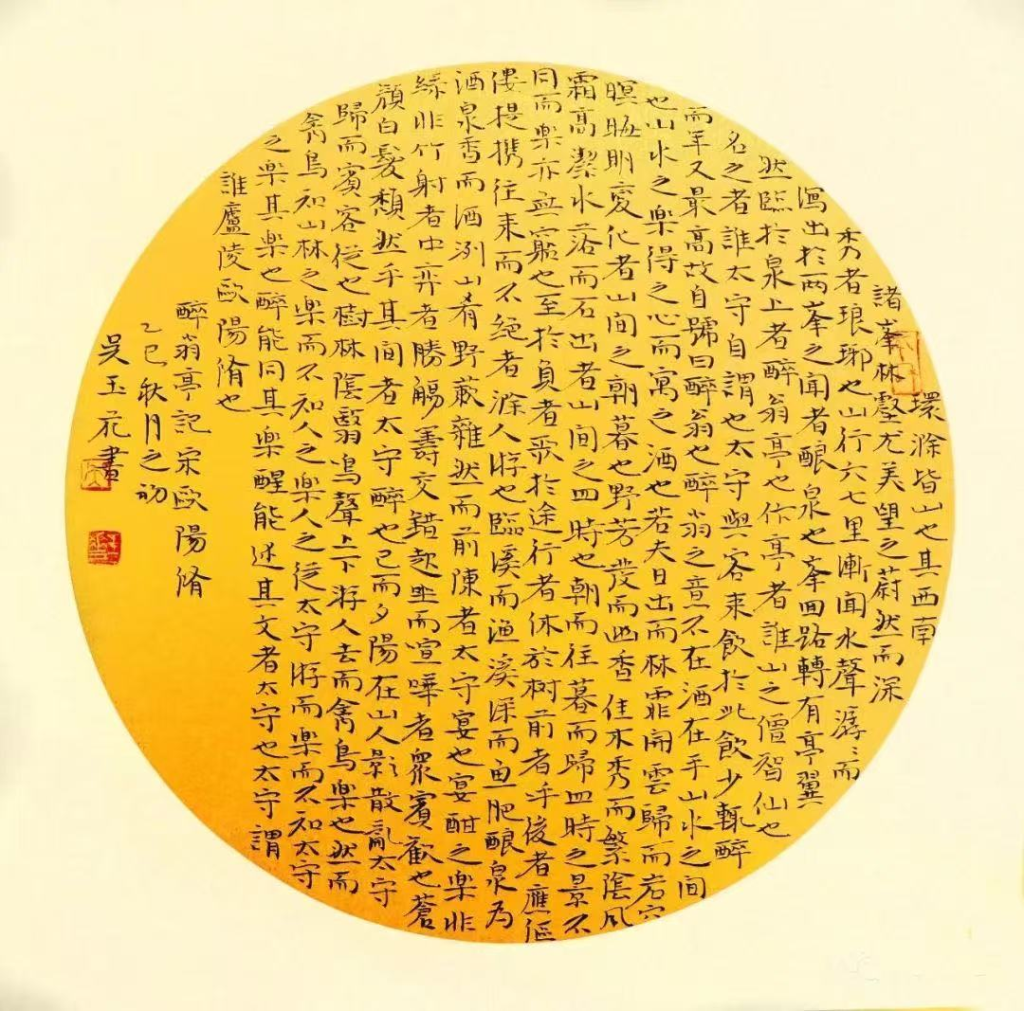 環滁皆山也其西南
諸峯林壑尤美望之蔚然而深
秀者琅琊也山行六七里漸聞水聲潺〻而
瀉出於兩峯之聞者釀泉也峯回路轉有亭翼
然臨於泉上者醉翁亭也作亭者誰山之僧智仙也
名之者誰太守自謂也太守與客来飲於此飲少輒醉
而年又最高故自號曰醉翁也醉翁之意不在酒在乎山水之间
也山水之樂得之心而寓之酒也若夫日出而林霏開雲歸而岩穴
暝晦明変化者山间之朝暮也野芳發而幽香佳木秀而繁陰風
霜高潔水落而石出者山间之四時也朝而往暮而歸四時之景不
同而樂亦無窮也至於負者歌於途行者休於树前者乎後者應傴
僂提携往来而不绝者滁人游也臨溪而漁溪深而魚肥釀泉为
酒泉香而酒洌山肴野蔌雜然而前陳者太守宴也宴酣之樂非
絲非竹射者中弈者勝觴籌交錯起坐而喧嘩者眾賓歡也蒼
顏白髮頹然乎其間者太守醉也已而夕陽在山人影散亂太守
歸而賓客從也樹林陰翳鳴聲上下游人去而禽鳥樂也然而
禽鳥知山林之樂而不知人之樂人之從太守游而樂而不知太守
之樂其樂也醉能同其樂醒能述其文者太守也太守謂
誰廬陵歐陽脩也
醉翁亭記宋歐陽脩
乙巳秋月之初
吴玉花書